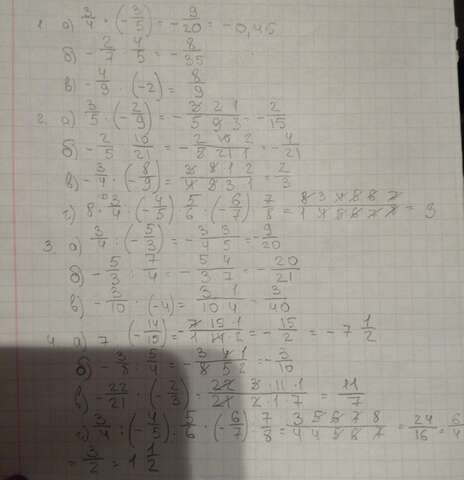 1. а) 3/4 · (-3/5) = -9/20 = -0,45
б) -2/7 · 4/5 = -8/35
в) -4/9 · (-2) = 8/9
2. а) 3/5 · (-2/9) = - 3 2 1 / 5 9 3 = -2/15
б) -2/5 · 10/21 = - 2 10 2 / 5 21 1 = -4/21
в) -3/4 · (-8/9) = 3 8 1 2 / 4 9 3 1 = 2/3
г) 8 · 3/4 · (-4/5) · 5/6 · (-6/7) · 7/8 = = 3
3. а) 3/4 : (-5/3) = - 3 3 / 4 5 = -9/20
б) -5/3 : 7/4 = - 5 4 / 3 7 = -20/21
в) -3/10 : (-4) = 3 1 / 10 4 = 3/40
4. а) 7 : (-14/15) = - 7 15 1 / 1 14 2 = -15/2 = -7 1/2
б) -3/8 : 5/4 = - 3 4 1 / 8 5 2 = -3/10
в) -22/21 : (-2/3) = 22 3 · 11 · 1 / 21 2 · 1 7 = 11/7
г) 3/4 : (-4/5) : 5/6 : (-6/7) : 7/8 = = 24/16 = 6/4
= 3/2 = 1 1/2